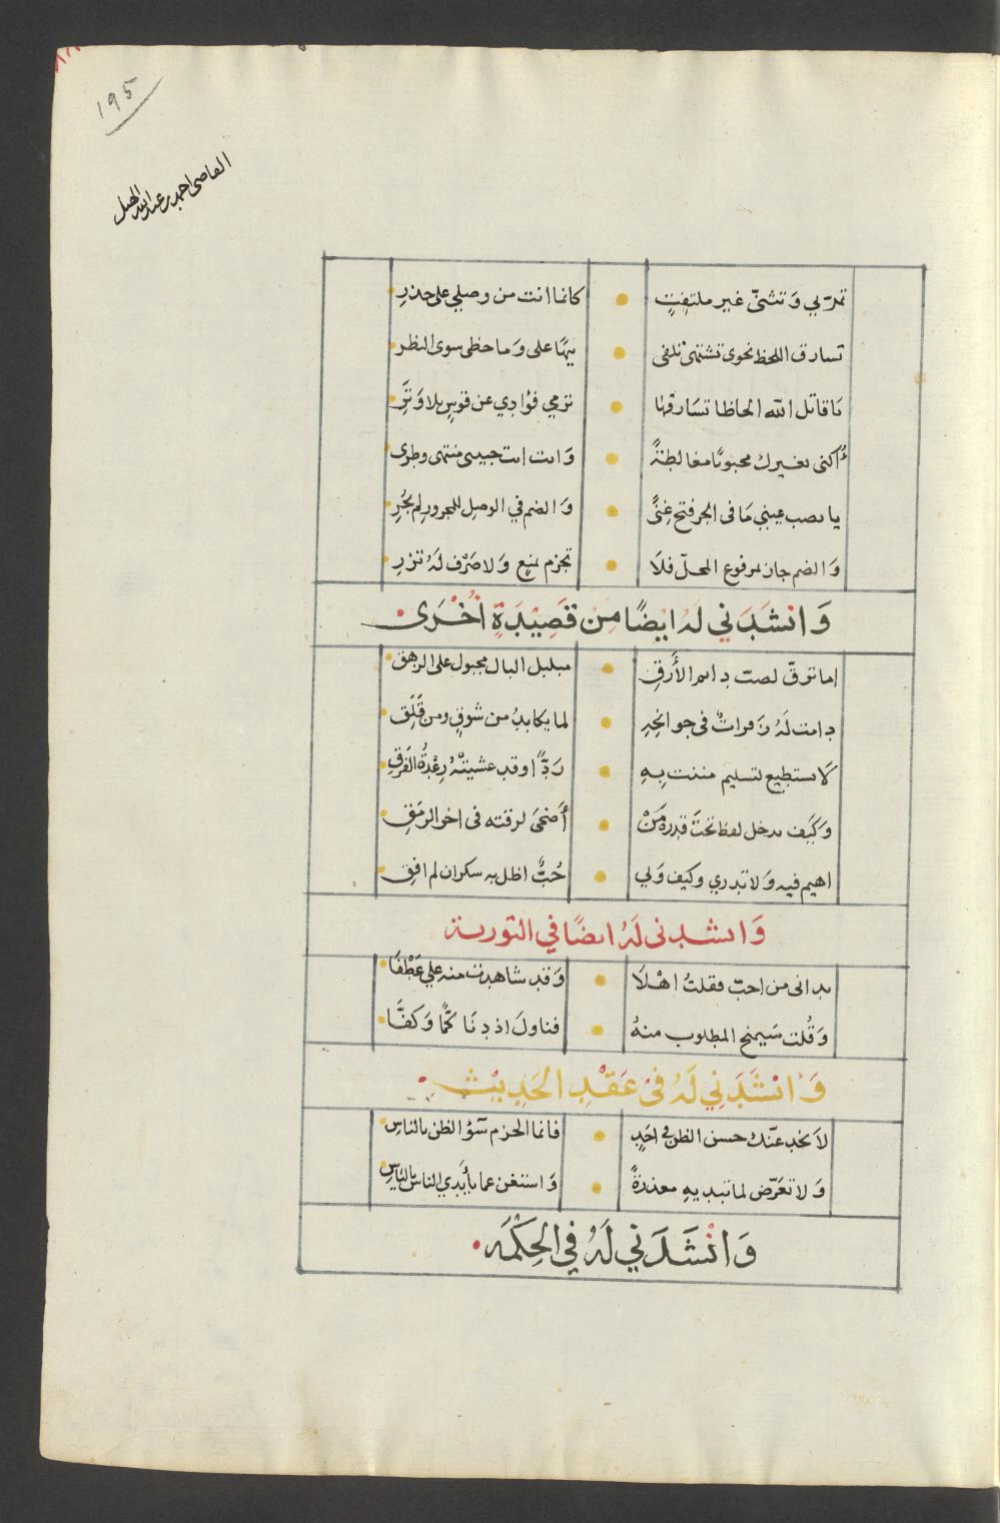 ١٩٥
القاضي احمد بن عبدالله الهبل
تمرّ بي وَتثنىّ غير ملتفِتٍ • كانما انت من وصلي على حذرِ
تسارق اللحظ نحوى تشتهى تلفى • تيهًا على وَما حظى سوى النظر
يَا قاتل الله الحاظا تسَارقها • ترمي فؤادِي عن قوسٍ بلا وَتَرِ
أكنى بغيرك محبوبًا مغالطةً • وَانت انت حبيبى منتهى وطرى
يا نصب عيني مَا فى الجر فتح غِنًى • وَالضم في الوصِل للمجرورِ لم يجُرِ
وَالضم جازٍ لمرفوع المحلّ فلَا • تجزم بمنعٍ وَلا صَرْف لَهُ تزرِ
وَانشَدَني لهُ ايضًا مِن قَصِيْدَةٍ اُخْرَى
اما ترقّ لصبّ دائم الأَرقِ • مبلبل البال مجبول على الرهق
دامت لَهُ زَفراتٌ فى جوانحِهِ • لما يكابدُ من شوقٍ ومن قَلَق
لَا يستطيع لتسليم مننت بِهِ • رَدًّا وقد غشيتهُ رِعْدةُ الفَرقِ
وَكَيف يدخل لفظ تحتَ قدرة مَنْ • أَضحَى لرقته فى اخر الرمَقِ
اهيم فيه وَلا تدري وكيف وَلي • حُبٌّ اظل به سكران لم افقِ
وَانشدنى لَهُ ايضًا في التورية
بدانى من احبّ فقلتُ اهْلَا • وَقد شاهدت منه علي عَطْفَا
وَقُلت سَيمنح المطلوب منهُ • فناولَ اذ دنَا كَمًّا وَكفَّا
وَانْشَدَنِي لَهُ فىْ عَقْدِ الحَدِيْث
لاَ يخدعنّك حسن الظن في احَدٍ • فانما الحزم سُوْ الظن بالناسِ
وَلا تعَرّض لما تبديهِ معذرةً • وَاستغن عما بأَيدي الناس بالياسِ
وَانْشَدَني لَهُ فِي الحِكْمَه